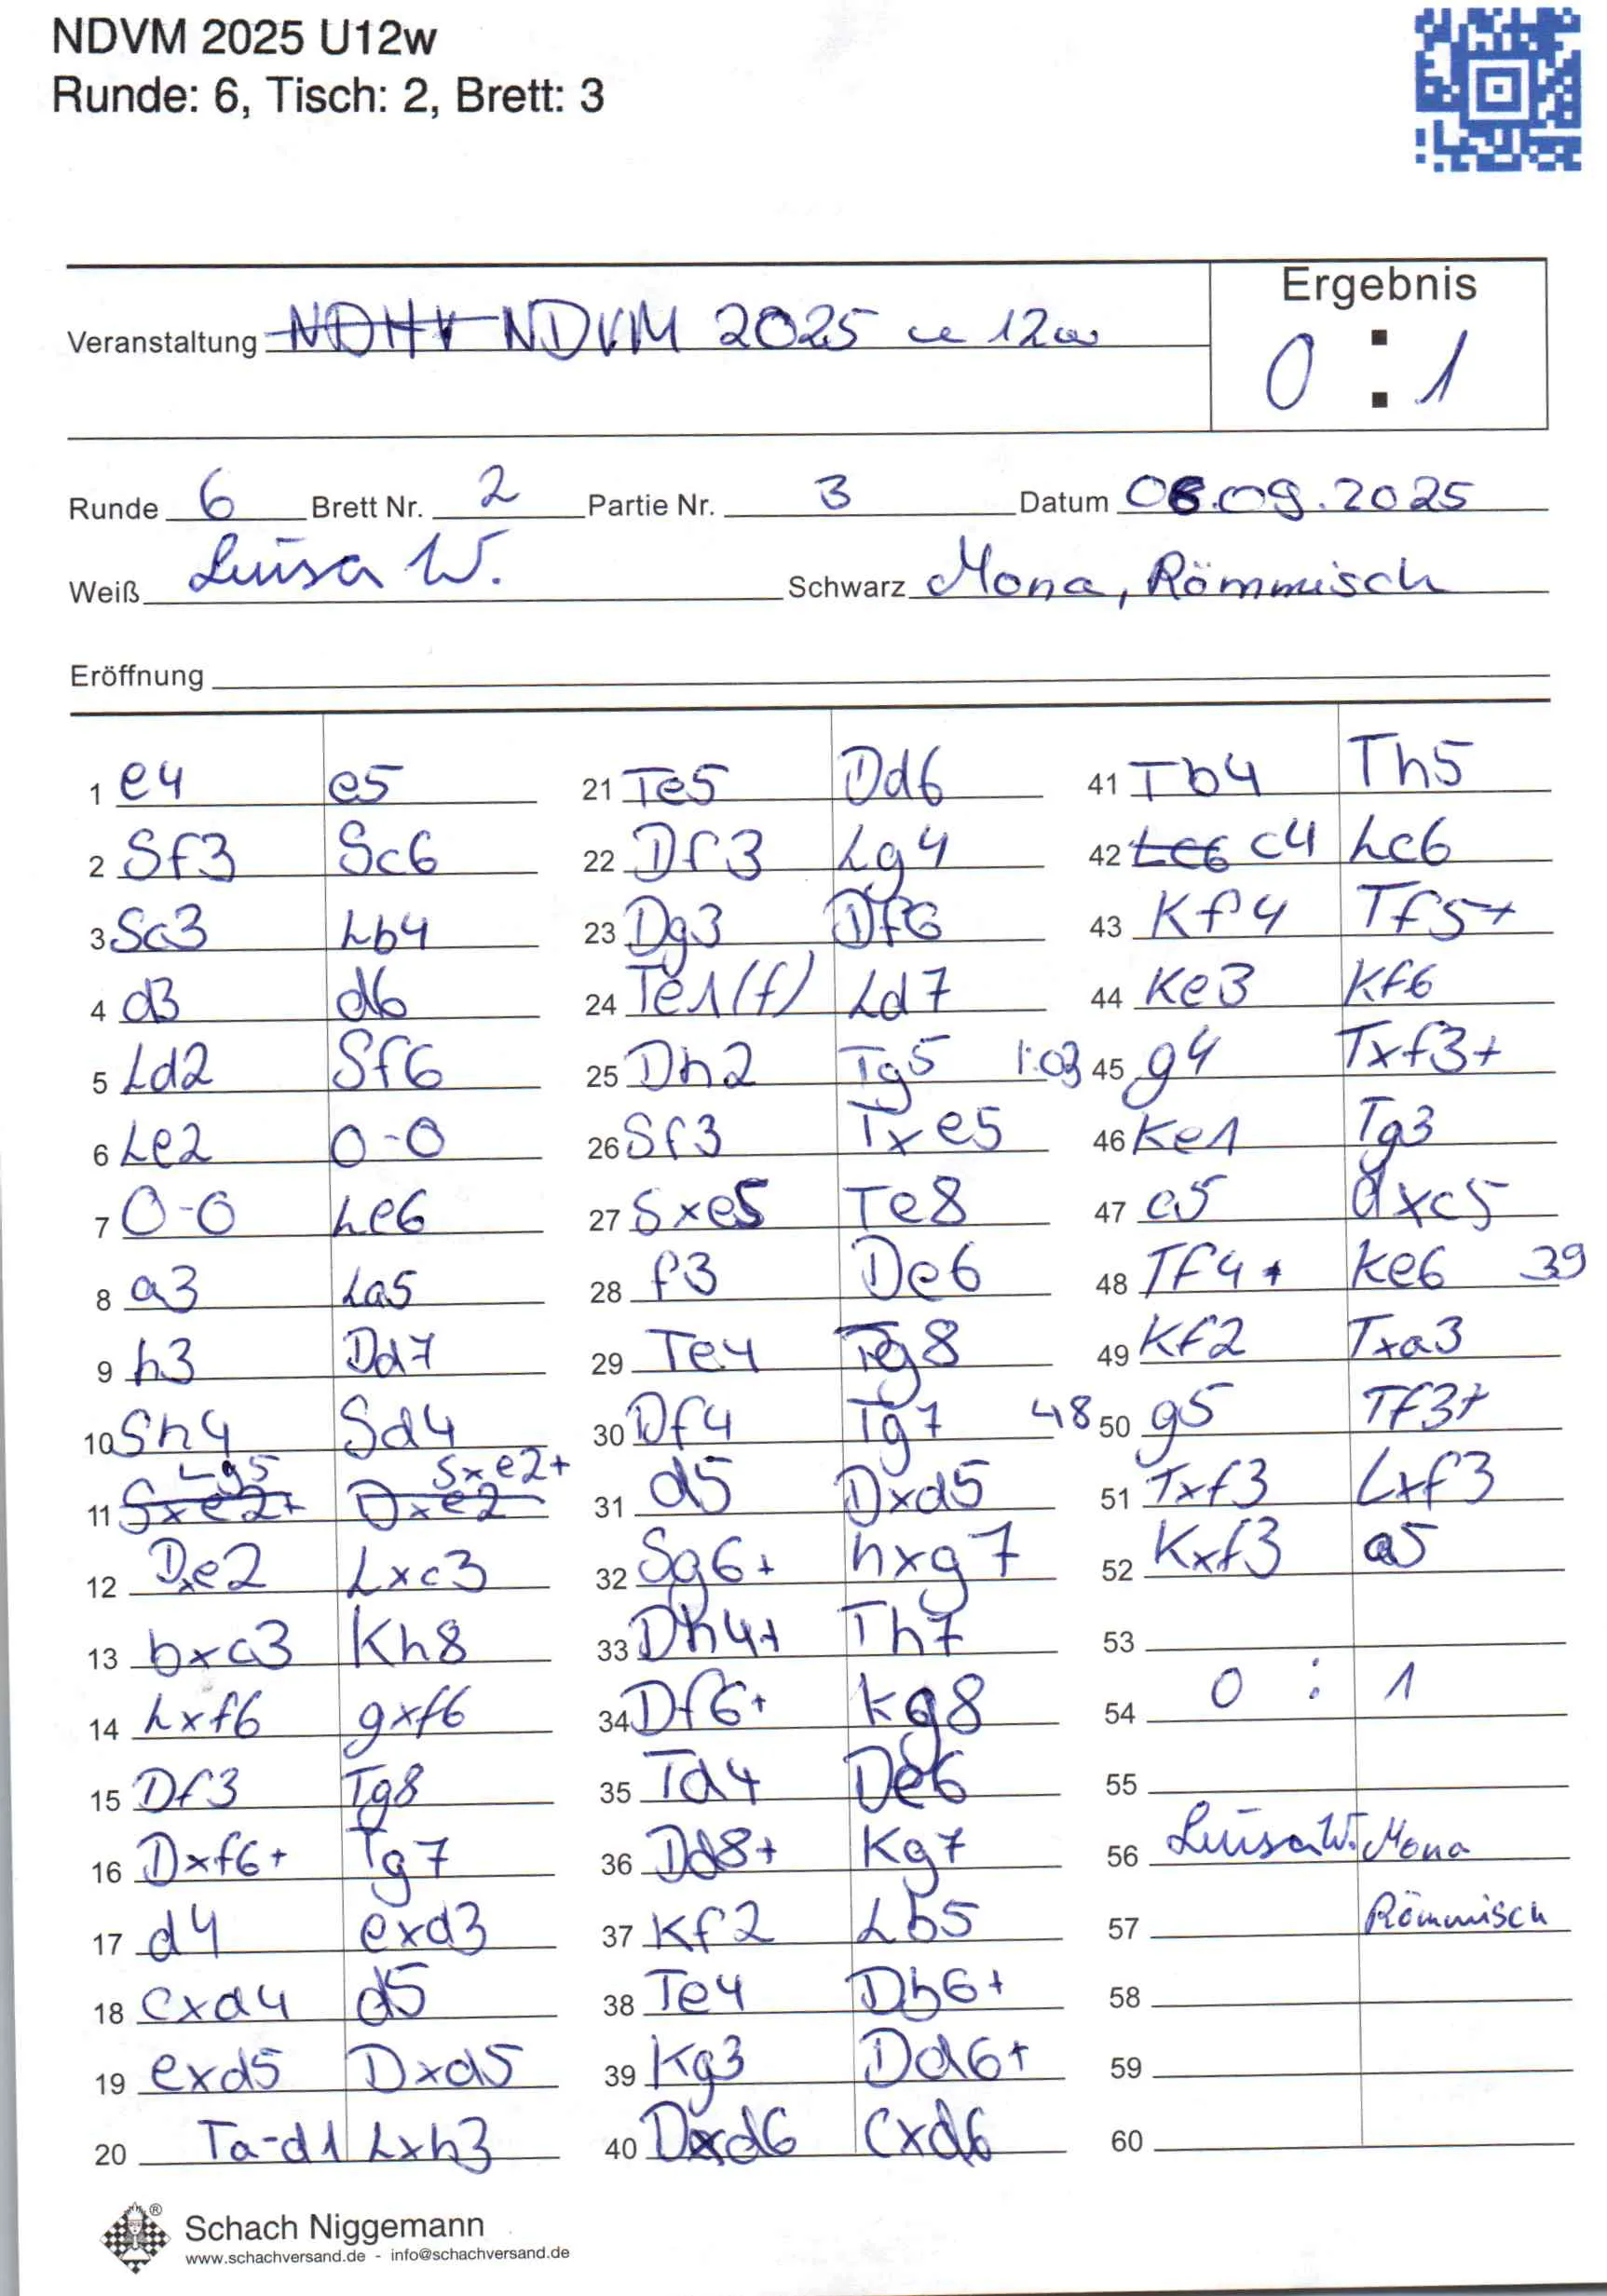 NDVM 2025 U12w
Runde: 6, Tisch: 2, Brett: 3
Ergebnis
Veranstaltung NDHV NDVM 2025 u 12w
0 : 1
Runde 6 Brett Nr. 2 Partie Nr. 3 Datum 06.09.2025
Weiß Luisa W. Schwarz Mona, Römmisch
Eröffnung
1 e4 e5
2 Sf3 Sc6
3 Sc3 Lb4
4 d3 d6
5 Ld2 Sf6
6 Le2 0-0
7 0-0 Le6
8 a3 La5
9 h3 Dd7
10 Sh4 Sd4
11 Sxe2+ Lg5 Dxe2 Sxe2+
12 Dxe2 Lxc3
13 bxc3 Kh8
14 Lxf6 gxf6
15 Df3 Tg8
16 Dxf6+ Tg7
17 d4 exd3
18 cxd4 d5
19 exd5 Dxd5
20 Ta-d1 Lxh3
21 Te5 Dd6
22 Df3 Lg4
23 Dg3 Df6
24 Te1(f) Ld7
25 Dh2 Tg5 1:03
26 Sf3 Txe5
27 Sxe5 Te8
28 f3 De6
29 Te4 Tg8
30 Df4 Tg7 48
31 d5 Dxd5
32 Sg6+ hxg7
33 Dh4+ Th7
34 Df6+ Kg8
35 Td4 De6
36 Dd8+ Kg7
37 Kf2 Lb5
38 Te4 Db6+
39 Kg3 Dd6+
40 Dxd6 Cxd6
41 Tb4 Th5
42 Lc6 c4 Lc6
43 Kf4 Tf5+
44 Ke3 Kf6
45 g4 Txf3+
46 Ke1 Tg3
47 c5 dxc5
48 Tf4+ Ke6 39
49 Kf2 Txa3
50 g5 Tf3+
51 Txf3 Lxf3
52 Kxf3 a5
53
54 0 : 1
55
56 Luisa W. Mona
57 Römmisch
58
59
60
Schach Niggemann
www.schachversand.de - info@schachversand.de